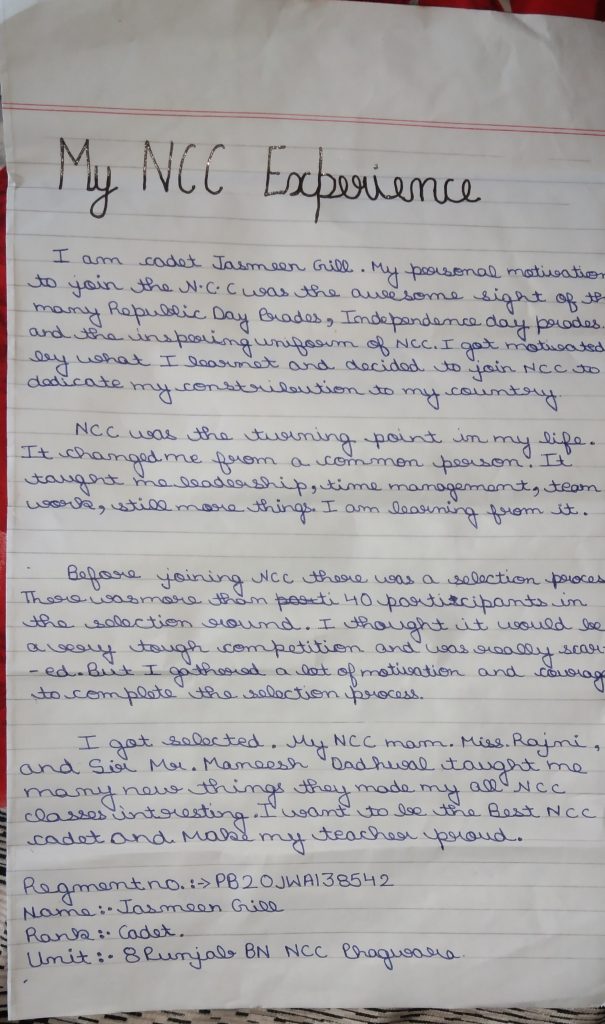 My NCC Experience
I am cadet Jasmeen Gill. My personal motivation
to join the N.C.C was the awesome sight of th
many Republic Day Prades, Independence day prades.
and the insporing uniform of NCC. I got motivated
by what I learnet and decided to join NCC to
dedicate my constribution to my country.
NCC was the turning point in my life.
It changed me from a common person. It
taught me leadership, time management, team
work, still more things. I am learning from it.
Before joining NCC there was a selection proces
There was more than 40 participants in
the selection round. I thought it would be
a very tough competition and was really scar
-ed. But I gathered a lot of motivation and courag
to complete the selection process.
I got selected. My NCC mam. Miss. Rajni,
and Sir Mr. Maneesh Dadhwal taught me
many new things they made my all NCC
classes interesting. I want to be the Best NCC
cadet and Make my teacher proud.
Regment no. :-> PB20JWA138542
Name :- Jasmeen Gill
Rank :- Cadet.
Unit :- 8 Punjab BN NCC Phagwara.